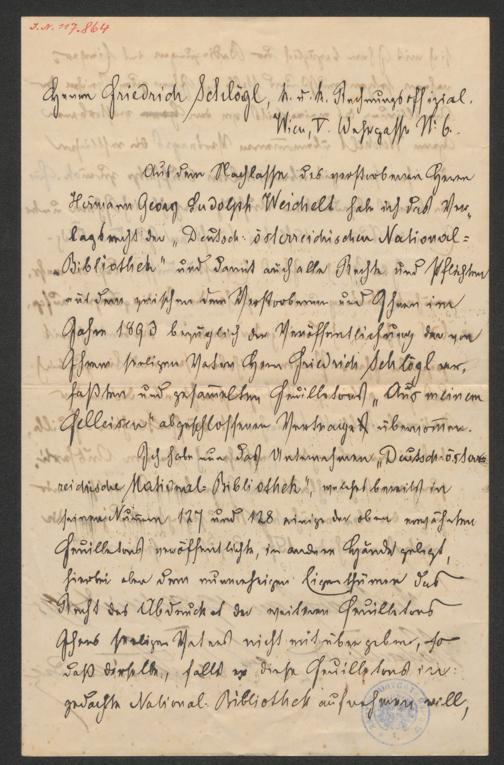 J.N. 117.864
Herrn Friedrich Schlögl, k. u. k. Rechnungsoffizial.
Wien, V. Wehrgasse N: 6.
Aus dem Nachlasse des verstorbenen Herrn
Hermann Georg Ludolph Weichelt habe ich das Ver-
lagsrecht der „Deutsch-österreichischen National-
Bibliothek" und damit auch alle Rechte und Pflichten
aus dem zwischen dem Verstorbenen und Ihnen im
Jahre 1893 bezüglich der Veröffentlichung der von
Ihrem seeligen Vater Herrn Friedrich Schlögl ver-
faßten und gesammelten Feuilletons „Aus meinem
Felleisen" abgeschlossenen Vertrages übernommen.
Ich habe nun das Unternehmen „Deutsch-öster-
reichische National-Bibliothek", welches bereits in
seinen Nummern 127 und 128 einige der oben erwähnten
Feuilletons veröffentlichte, in andere Hände gelegt,
hierbei aber dem nunmehrigen Eigenthümer das
Recht des Abdruckes der weiteren Feuilletons
Ihres seeligen Vaters nicht mit übergeben, so
daß derselbe, falls er diese Feuilletons in
gedachte National-Bibliothek aufnehmen will,